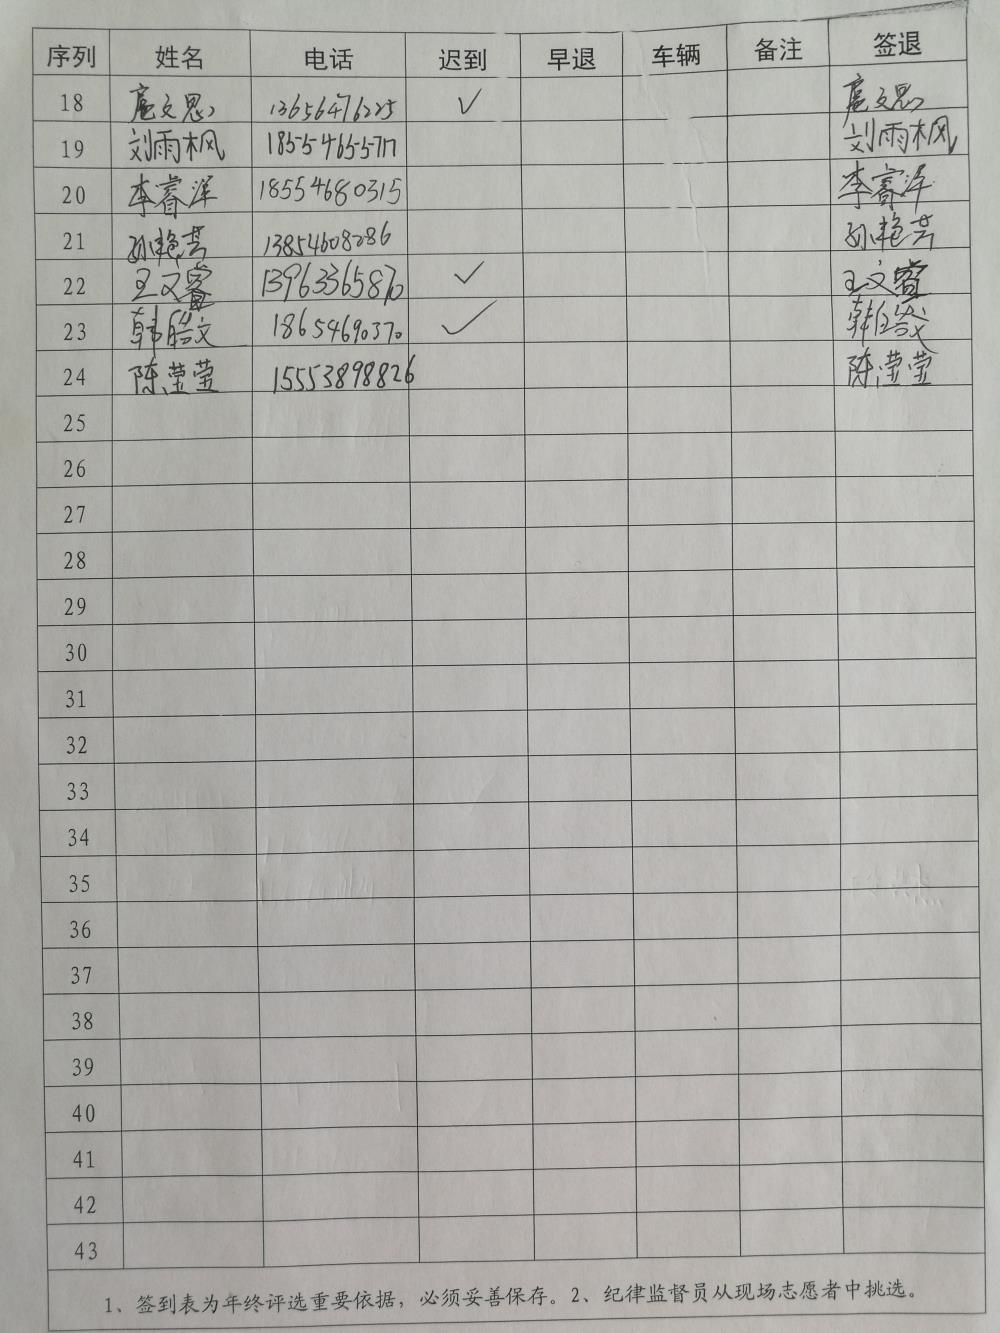 序列 姓名 电话 迟到 早退 车辆 备注 签退
18 扈文思 13656476225 ✓ 扈文思
19 刘雨枫 18554655717 刘雨枫
20 李睿洋 18554680315 李睿洋
21 孙艳芳 13854608286 孙艳芳
22 王文睿 13963365870 ✓ 王文睿
23 韩皓文 18654690370 ✓ 韩皓文
24 陈滢莹 15553898826 陈滢莹
25
26
27
28
29
30
31
32
33
34
35
36
37
38
39
40
41
42
43
1、签到表为年终评选重要依据，必须妥善保存。2、纪律监督员从现场志愿者中挑选。